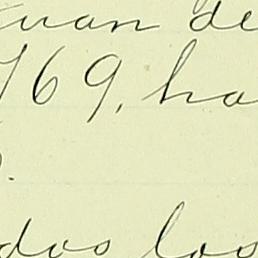 uan de
769, ha
.
dos los